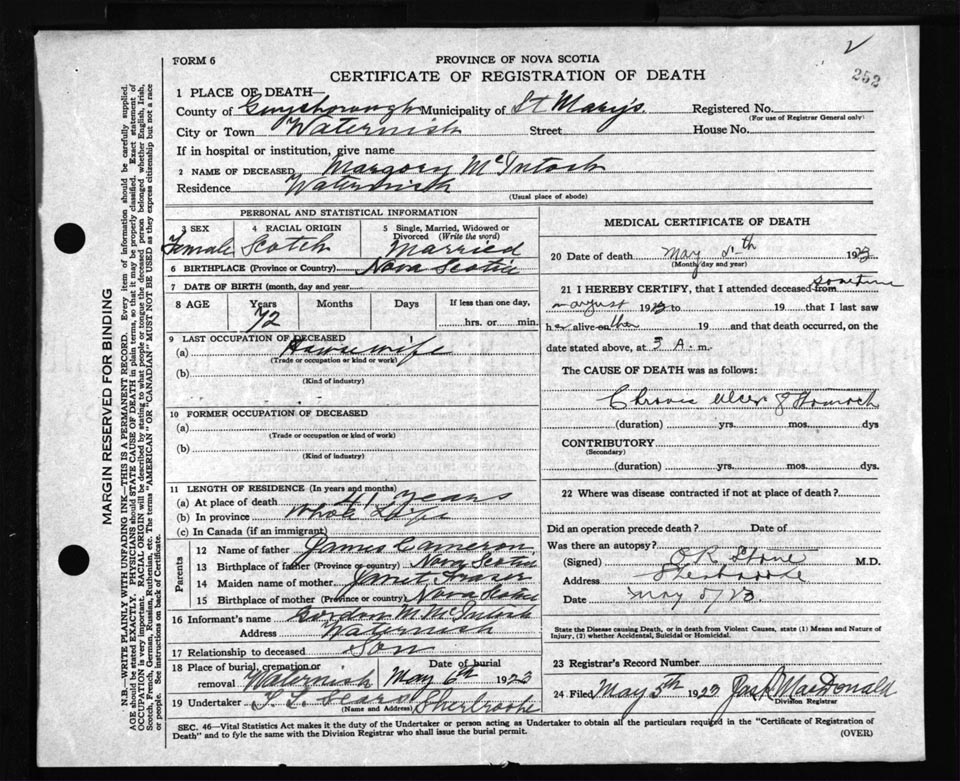 252
FORM 6
PROVINCE OF NOVA SCOTIA
CERTIFICATE OF REGISTRATION OF DEATH
1 PLACE OF DEATH—
County of Guysborough Municipality of St Mary's Registered No.
(For use of Registrar General only)
City or Town Waternish Street House No.
If in hospital or institution, give name
2 NAME OF DECEASED Margory McIntosh
Residence Waternish
(Usual place of abode)
PERSONAL AND STATISTICAL INFORMATION
3 SEX 4 RACIAL ORIGIN 5 Single, Married, Widowed or Divorced (Write the word)
Female Scotch Married
6 BIRTHPLACE (Province or Country) Nova Scotia
7 DATE OF BIRTH (month, day and year)
8 AGE Years Months Days If less than one day,
72 hrs. or min.
9 LAST OCCUPATION OF DECEASED
(a) Housewife
(Trade or occupation or kind or work)
(b)
(Kind of industry)
10 FORMER OCCUPATION OF DECEASED
(a)
(Trade or occupation or kind of work)
(b)
(Kind of industry)
11 LENGTH OF RESIDENCE (In years and months)
(a) At place of death 41 years
(b) In province Whole Life
(c) In Canada (if an immigrant)
Parents
12 Name of father James Cameron
13 Birthplace of father (Province or country) Nova Scotia
14 Maiden name of mother Janet Fraser
15 Birthplace of mother (Province or Country) Nova Scotia
16 Informant's name Gordon M. McIntosh
Address Waternish
17 Relationship to deceased Son
18 Place of burial, cremation or removal Waternish Date of burial May 6th 1923
19 Undertaker Sears Sherbrooke
(Name and Address)
MEDICAL CERTIFICATE OF DEATH
20 Date of death May 5th 1923
(Month, day and year)
21 I HEREBY CERTIFY, that I attended deceased from sometime
in august 19 to 19 that I last saw
her alive on then 19 and that death occurred, on the
date stated above, at 3 A. m.
The CAUSE OF DEATH was as follows:
Chronic ulcer of Stomach
(duration) yrs. mos. dys
CONTRIBUTORY
(Secondary)
(duration) yrs. mos. dys.
22 Where was disease contracted if not at place of death?
Did an operation precede death? Date of
Was there an autopsy?
(Signed) Stone M.D.
Address Sherbrooke
Date May 5/23
State the Disease causing Death, or in death from Violent Causes, state (1) Means and Nature of Injury, (2) whether Accidental, Suicidal or Homicidal.
23 Registrar's Record Number
24 Filed May 5th 192 MacDonald
Division Registrar
SEC. 46—Vital Statistics Act makes it the duty of the Undertaker or person acting as Undertaker to obtain all the particulars required in the "Certificate of Registration of
Death" and to fyle the same with the Division Registrar who shall issue the burial permit.
(OVER)
MARGIN RESERVED FOR BINDING
N.B.—WRITE PLAINLY WITH UNFADING INK—THIS IS A PERMANENT RECORD. Every item of information should be carefully supplied.
AGE should be stated EXACTLY. PHYSICIANS should STATE CAUSE OF DEATH in plain terms, so that it may be properly classified. Exact statement of
OCCUPATION is very important. RACIAL ORIGIN will be described by stating to what people or tongue the deceased person belonged whether English, Irish,
Scotch, French, German, Russian, Ruthenian, etc. The terms "AMERICAN" OR "CANADIAN" MUST NOT BE USED as they express citizenship but not a race
or people. See instructions on back of Certificate.